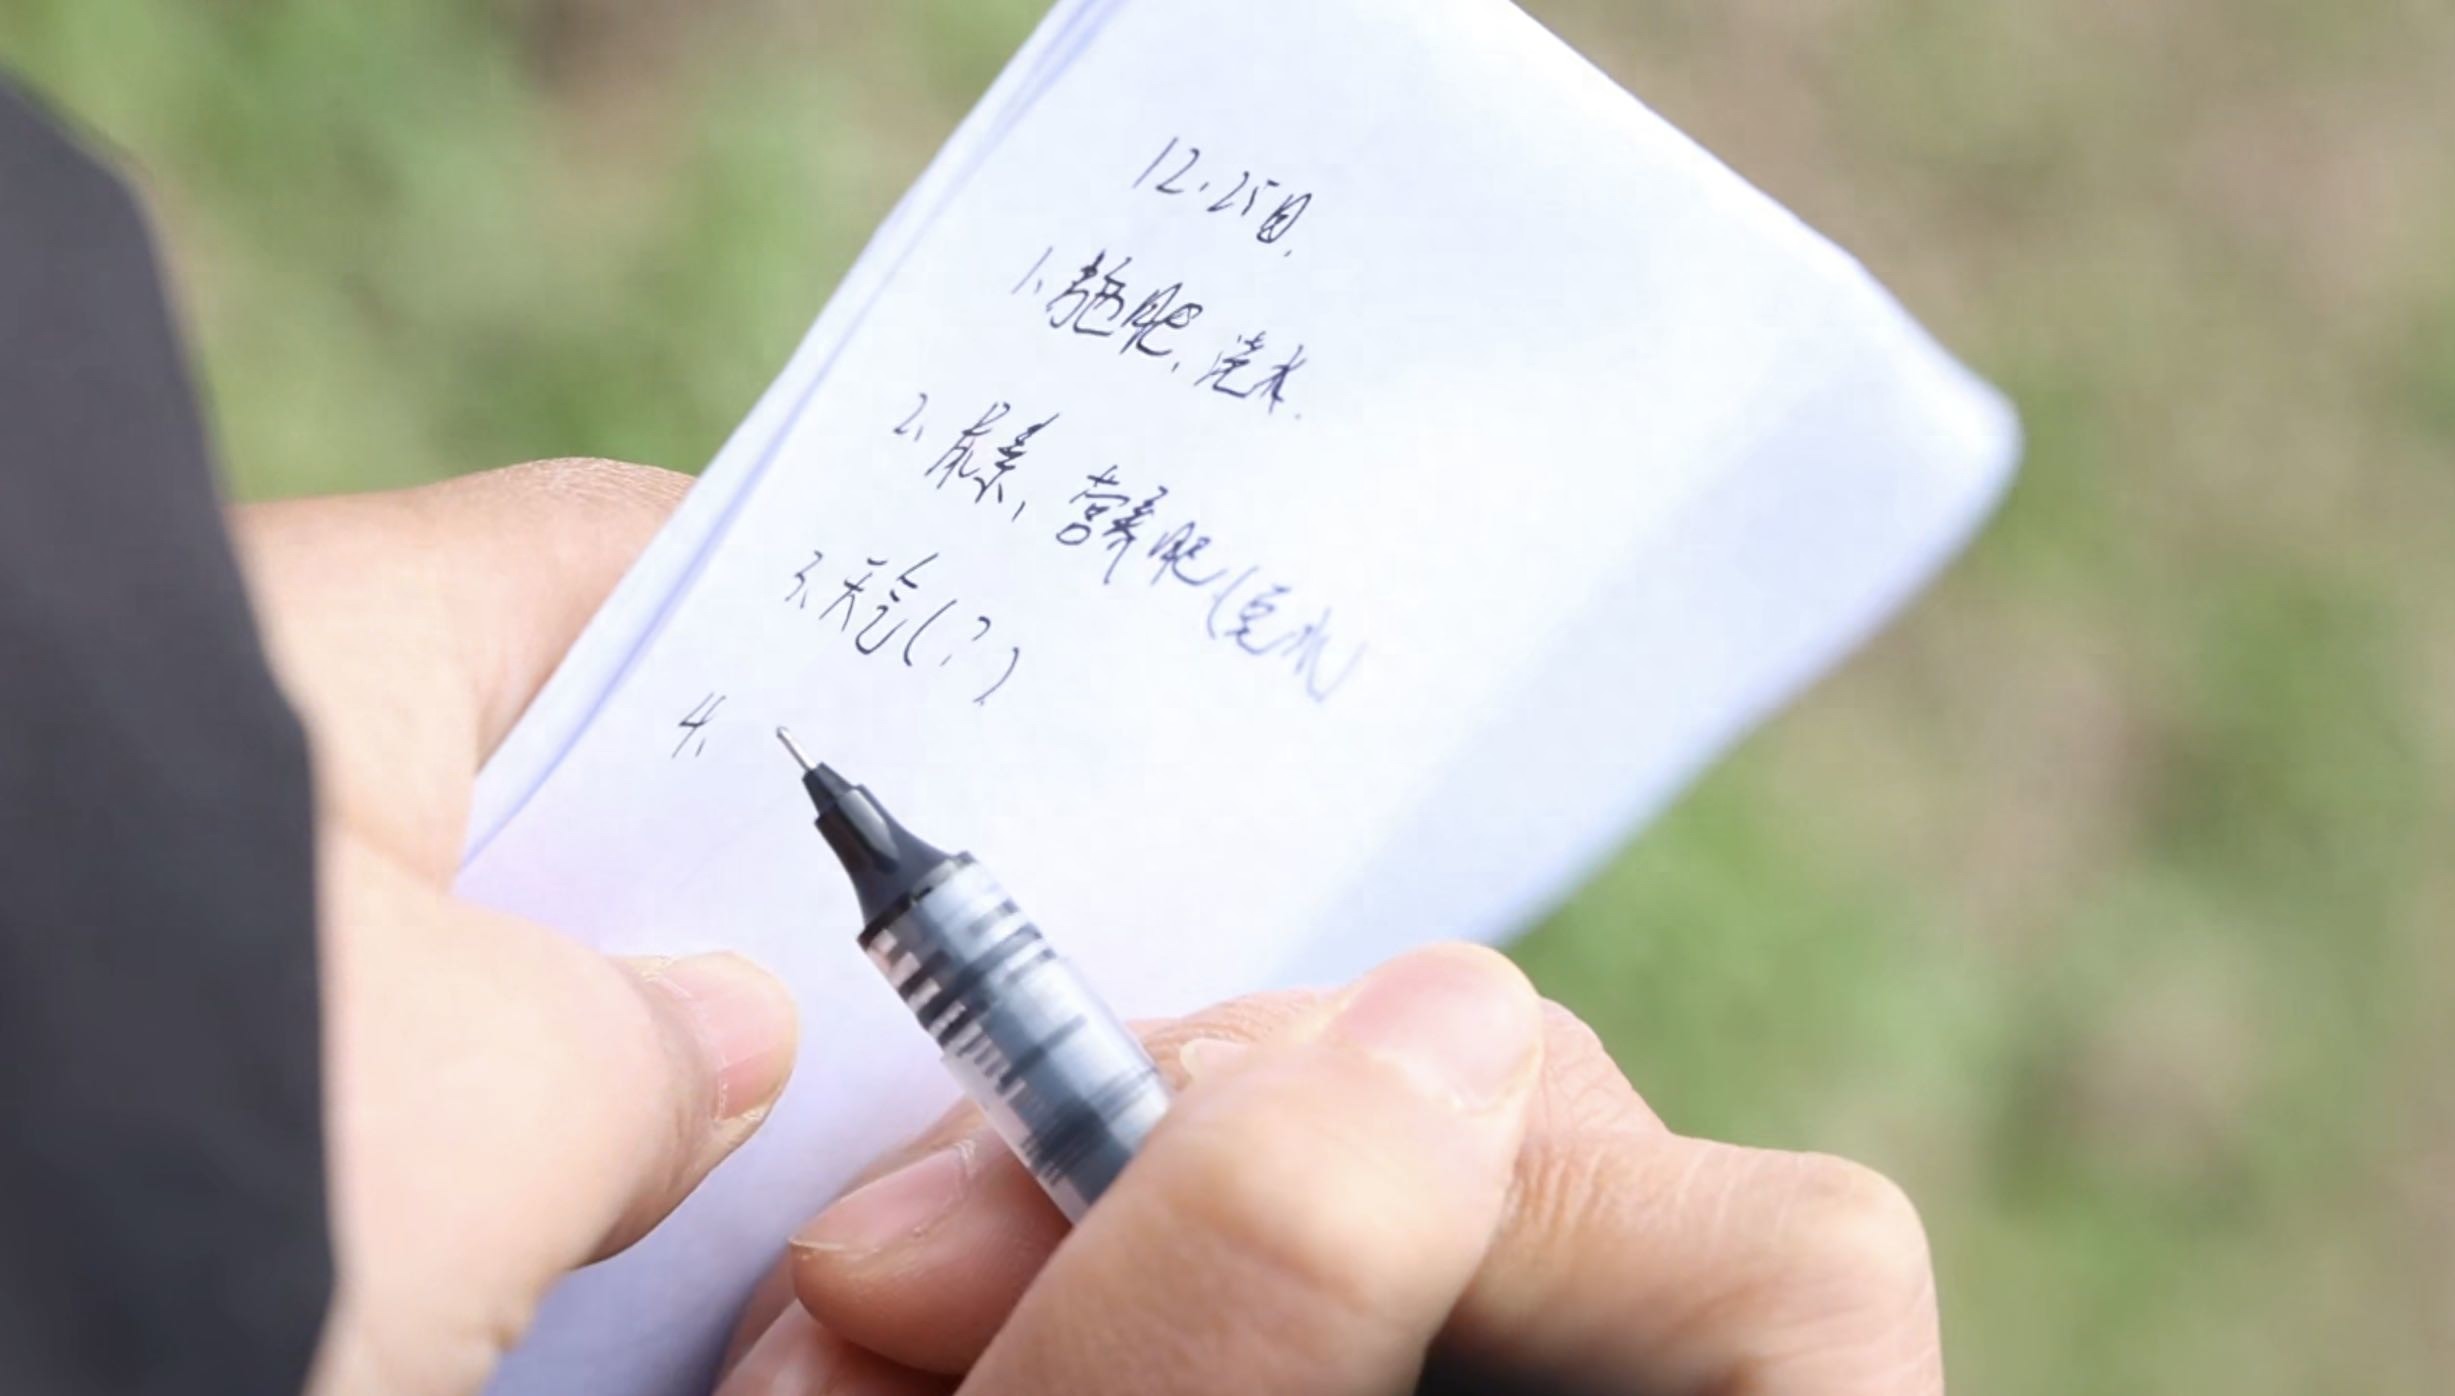 12.25日.
1、施肥、浇水.
2、尿素、营养肥(兑水)
3、天气(?)
4、